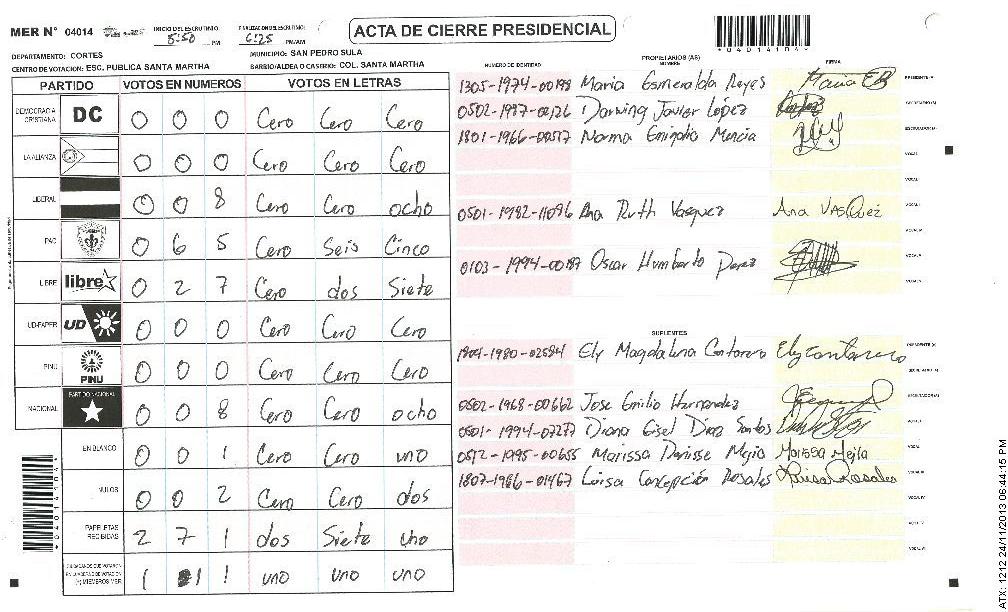 MER N° 04014
INICIO DEL ESCRUTINIO 5:50 PM
FINALIZACION ESCRUTINIO: 6:25 PM/AM
ACTA DE CIERRE PRESIDENCIAL
*04014104*
DEPARTAMENTO: CORTES
MUNICIPIO: SAN PEDRO SULA
CENTRO DE VOTACION: ESC. PUBLICA SANTA MARTHA
BARRIO/ALDEA O CASERIO: COL. SANTA MARTHA
PARTIDO VOTOS EN NUMEROS VOTOS EN LETRAS
DEMOCRACIA CRISTIANA DC 0 0 0 Cero Cero Cero
LA ALIANZA 0 0 0 Cero Cero Cero
LIBERAL 0 0 8 Cero Cero ocho
PAC 0 6 5 Cero Seis Cinco
LIBRE libre 0 2 7 Cero dos Siete
UD-FAPER UD 0 0 0 Cero Cero Cero
PINU PINU 0 0 0 Cero Cero Cero
NACIONAL PARTIDO NACIONAL 0 0 8 Cero Cero ocho
EN BLANCO 0 0 1 Cero Cero uno
NULOS 0 0 2 Cero Cero dos
PAPELETAS RECIBIDAS 2 7 1 dos Siete uno
CIUDADANOS QUE VOTARON EN CUADERNO DE VOTACION (+) MIEMBROS MER 1 1 1 uno uno uno
*04014104*
PROPIETARIOS (AS)
NUMERO DE IDENTIDAD NOMBRE FIRMA
1305-1974-00198 Maria Esmeralda Reyes Maria ER PRESIDENTE (A)
0502-1987-00126 Darwing Javier López SECRETARIO (A)
1801-1966-00517 Norma Mencia ESCRUTADOR (A)
VOCAL I
0501-1982-11096 Ana Ruth Vasquez Ana VASQuez
0103-1994-00187 Oscar Humberto Perez
SUPLENTES
1804-1980-02584 Ely Magdalena Contarero Ely Contarero PRESIDENTE (A)
SECRETARIO (A)
0502-1968-00662 Jose Emilio Hernandez ESCRUTADOR (A)
0501-1994-07277 Diana Gisel Diaz Santos VOCAL I
0512-1995-00655 Marissa Denisse Mejia Marissa Mejia
1807-1986-01467 Luisa Concepción Rosales Luisa Rosales
VOCAL IV
VOCAL V
VOCAL VI
ATX: 1212 24/11/2013 06:44:15 PM